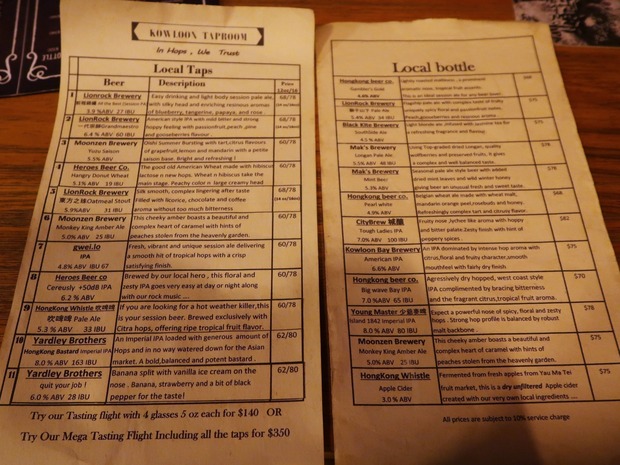 KOWLOON TAPROOM
In Hops, We Trust
Local Taps
Beer Description Price
1 Lionrock Brewery Easy drinking and light body session pale ale, 68/78
with silky head and enriching resinous aromas
3.9 %ABV 27 IBU of blueberry, tangerine, papaya, and pine
2 LionRock Brewery American style IPA with solid bitter and strong 68/78
一代宗師Grandmaestro hoppy feeling with passionfruit, peach, pine
6.4 % ABV 60 IBU and gooseberries flavour.
3 Moonzen Brewery Oishi Summer Bursting with tart,citrus flavours 60/78
Yuzu Saison of grapefruit,lemon and mandarin with a petite
5.5% ABV saison base. Bright and refreshing !
4 Heroes Beer Co. The good old American Wheat made with hibiscus 60/78
Hangry Donut Wheat lactose n wheat hops. N wheat n hibiscus take the
5.1% ABV 19 IBU main stage. Peachy color n large creamy head
5 LionRock Brewery Silk smooth, complex lingering after taste 68/78
東方之珠Oatmeal Stout Filled with licorice, chocolate and coffee
5.9%ABV 31 IBU aroma without too much bitterness
6 Moonzen Brewery This cheeky amber boasts a beautiful and 60/78
Monkey King Amber Ale complex heart of caramel with hints of
5.0% ABV 25 IBU peaches stolen from the heavenly garden.
7 gwei.lo Fresh, vibrant and unique session ale delivering 60/78
IPA a smooth hit of tropical hops with a crisp
4.8% ABV IBU 67 satisfying finish.
8 Heroes Beer co Brewed by our local hero , this floral and 60/78
Cereusly +50dB IPA zesty IPA goes very easy at day or night along
6.2 % ABV with our rock music ....
9 HongKong Whistle 吹啤啤 If you are looking for a hot weather killer,this 60/78
吹啤啤 Pale Ale is your session beer. Brewed exclusively with
5.3 % ABV 33 IBU Citra hops, offering ripe tropical fruit flavor.
10 Yardley Brothers An Imperial IPA loaded with generous amount of 62/80
HongKong Bastard Imperial IPA Hops and in no way watered down for the Asian
8.0 % ABV 163 IBU market. A bold,balanced and potent bastard .
11 Yardley Brothers Banana split with vanilla ice cream on the 62/80
quit your job ! nose . Banana, strawberry and a bit of black
6.0 % ABV 28 IBU pepper for the taste!
Try our Tasting flight with 4 glasses 5 oz each for $140 OR
Try Our Mega Tasting Flight Including all the taps for $350
Local bottle
Hongkong beer co.
Gambler's Gold
4.8% ABV
LionRock Brewery Flagship pale ale with complex taste of fruity $75
Pale Ale uniquely spicy floral and gooseberries
5.4% ABV 34 IBU Peach,gooseberries and rosinous aroma
Black Kite Brewery Light body ale infused with Jasmine tea for $75
a refreshing fragrance and flavor.
4.1 % ABV
Mak's Brewery Using Top-graded dried Longan, quality $75
Longan Pale Ale. wolfberries and preserved fruits, it gives
5.5% ABV a complex and well balanced taste.
Mak's Brewery Seasonal pale ale style beer with added $75
Mint Beer dried mint leaves and wild winter honey
5.3% ABV giving beer an unusual fresh and sweet taste.
Hongkong beer co. Belgian wheat ale made with wheat malt, $68
Pearl white mandarin orange peel,rosebuds and honey.
4.9% ABV Refreshingly complex tart and citrusy flavor.
CityBrew 城釀 Fruity nose ,lychee like aroma with hoppy $82
Tough Ladies IPA and bitter palate.Zesty finish with hint of
7.0% ABV 100 IBU peppery spices
Kowloon Bay Brewery An IPA dominated by intense hop aroma with $75
American IPA citrus,floral and fruity character,smooth
6.6% ABV mouthfeel with fairly dry finish
Hongkong beer co Agressively dry hopped, west coast style $70
Big wave Bay IPA IPA complimented by bracing bitterness
7.0 %ABV 65 IBU and the fragrant citrus,tropical fruit aroma.
Young Master 少爺麥啤 Expect a powerful nose of spicy, floral and zesty $78
Island 1842 Imperial IPA hops . Strong hop profile is balanced by robust
8.0 % ABV 80 IBU malt backbone .
Moonzen Brewery This cheeky amber boasts a beautiful and $75
Monkey King Amber Ale complex heart of caramel with hints of
5.0% ABV 25 IBU peaches stolen from the heavenly garden.
HongKong Whistle Fermented from fresh apples from Yau Ma Tei $75
Apple Cider fruit market, this is a dry unfiltered Apple cider
3.0 % ABV created with our very own local ingredients ....
All prices are subject to 10% service charge